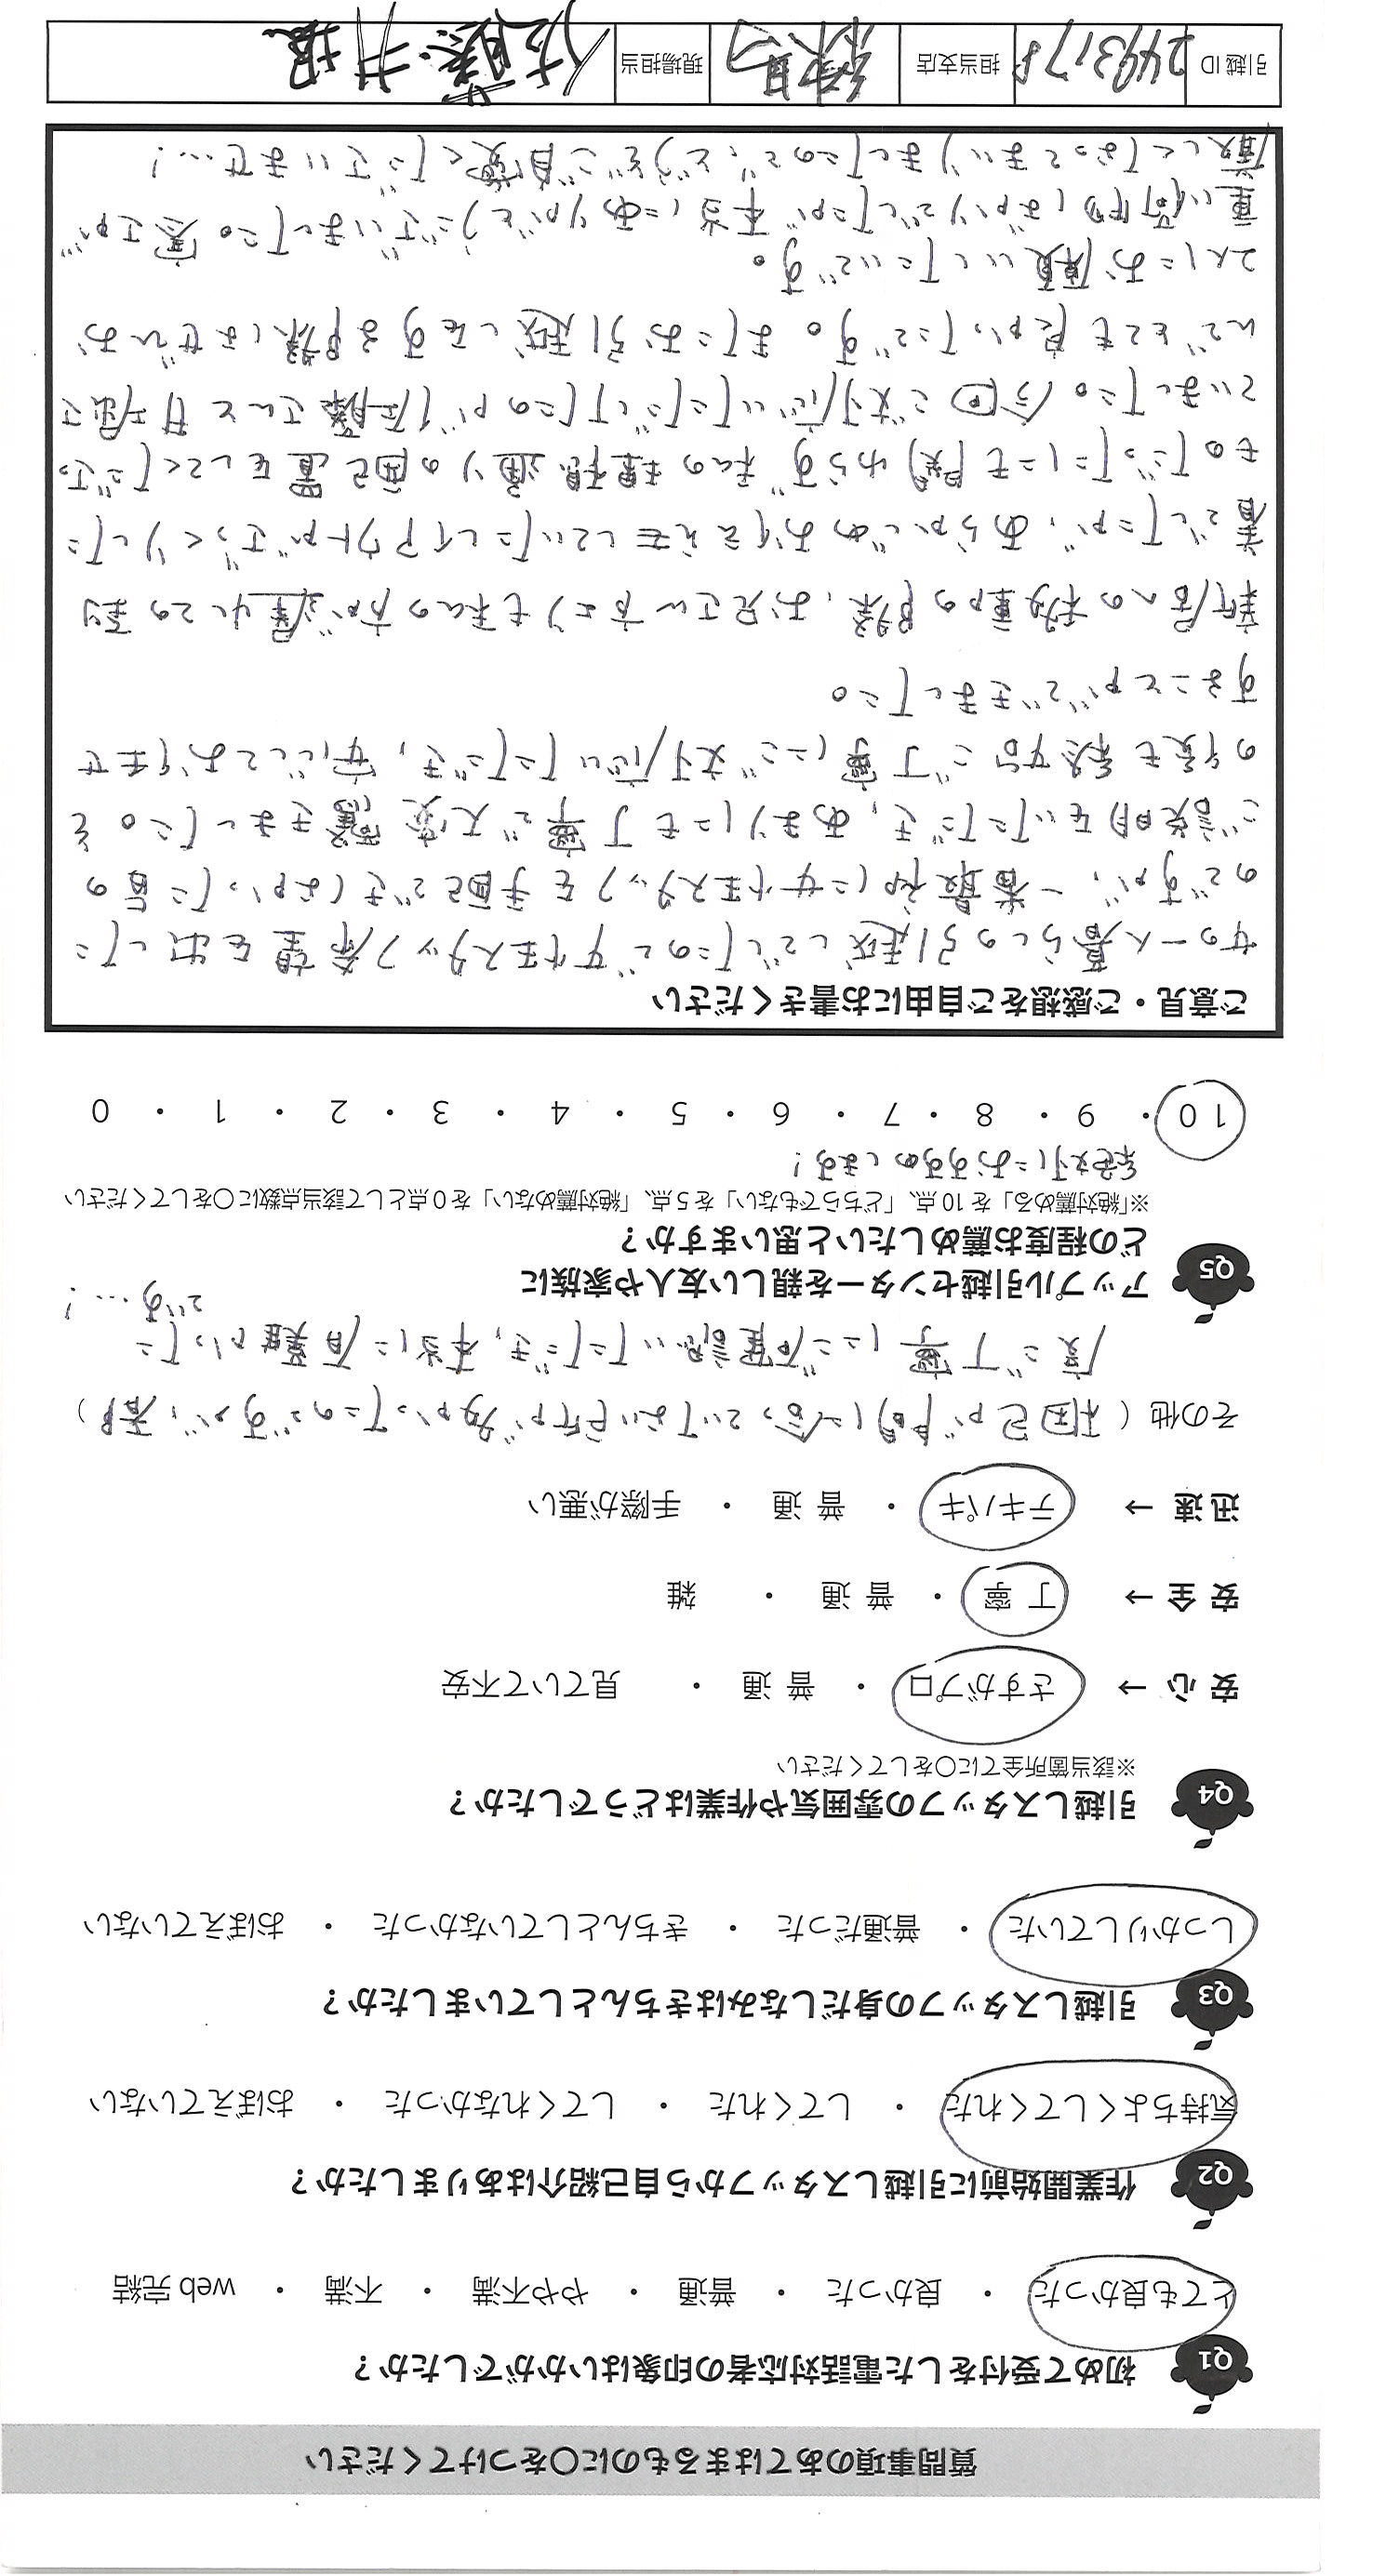 質問事項のあてはまるものに○をつけてください
Q1 初めて受付をした電話対応者の印象はいかがでしたか？
とても良かった ・ 良かった ・ 普通 ・ やや不満 ・ 不満 ・ web 完結
Q2 作業開始前に引越しスタッフから自己紹介はありましたか？
気持ちよくしてくれた ・ してくれた ・ してくれなかった ・ おぼえていない
Q3 引越しスタッフの身だしなみはきちんとしていましたか？
しっかりしていた ・ 普通だった ・ きちんとしていなかった ・ おぼえていない
Q4 引越しスタッフの雰囲気や作業はどうでしたか？
※該当箇所全てに○をしてください
安 心 → さすがプロ ・ 普 通 ・ 見ていて不安
安 全 → 丁 寧 ・ 普 通 ・ 雑
迅 速 → テキパキ ・ 普 通 ・ 手際が悪い
その他（ 梱包が間に合っていない所が多かったのですが、都
度ご丁寧にご確認いただき、本当に有難かった
です…！
Q5 アップル引越センターを親しい友人や家族に
どの程度お薦めしたいと思いますか？
※「絶対薦める」を 10 点、「どちらでもない」を 5 点、「絶対薦めない」を 0 点として該当点数に○をしてください
絶対におすすめします！
10 ・ 9 ・ 8 ・ 7 ・ 6 ・ 5 ・ 4 ・ 3 ・ 2 ・ 1 ・ 0
ご意見・ご感想をご自由にお書きください
女の一人暮らしの引越しでしたので女性スタッフ希望を出した
のですが、一番最初に女性スタッフを手配できなかった旨の
ご説明をいただき、あまりにも丁寧で大変驚きました。そ
の後も終始ご丁寧にご対応いただき、安心してお任せ
することができました。
新居への移動の際、お兄さん方よりも私の方が遅れての到
着でしたが、あらかじめお伝えをしていたレイアウトがざっくりした
ものだったにも関わらず、私の理想通りの配置をしてくださっ
ていました。今回ご対応いただいたのが佐藤さんと井堀さ
んでとても良かったです。またお引越しをする際はぜひお
2人にお願いしたいです。
重い荷物ばかりでしたが本当にありがとうございました。寒さが
厳しくなってまいりましたので、どうぞご自愛くださいませ…！
引越 ID 2493178 担当支店 練馬 現場担当 佐藤・井堀